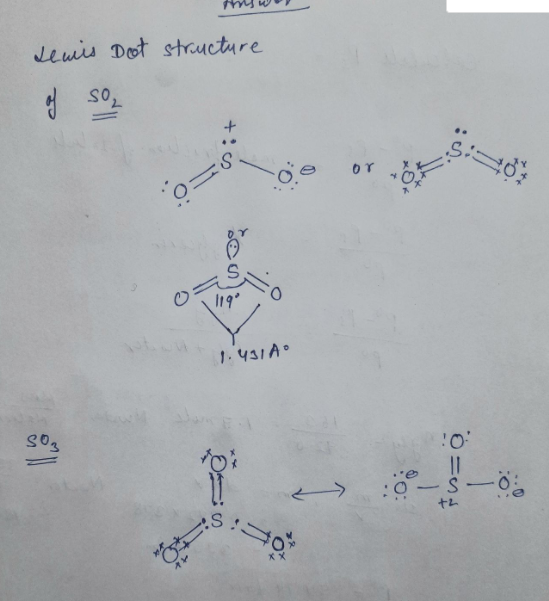 Answer
Lewis Dot structure
of SO2
+
S
O O ⊖ or S
O O
or
S
O 119° O
1.431A°
SO3
O
S
O O
↔
O
⊖ O — S — O ⊖
+2